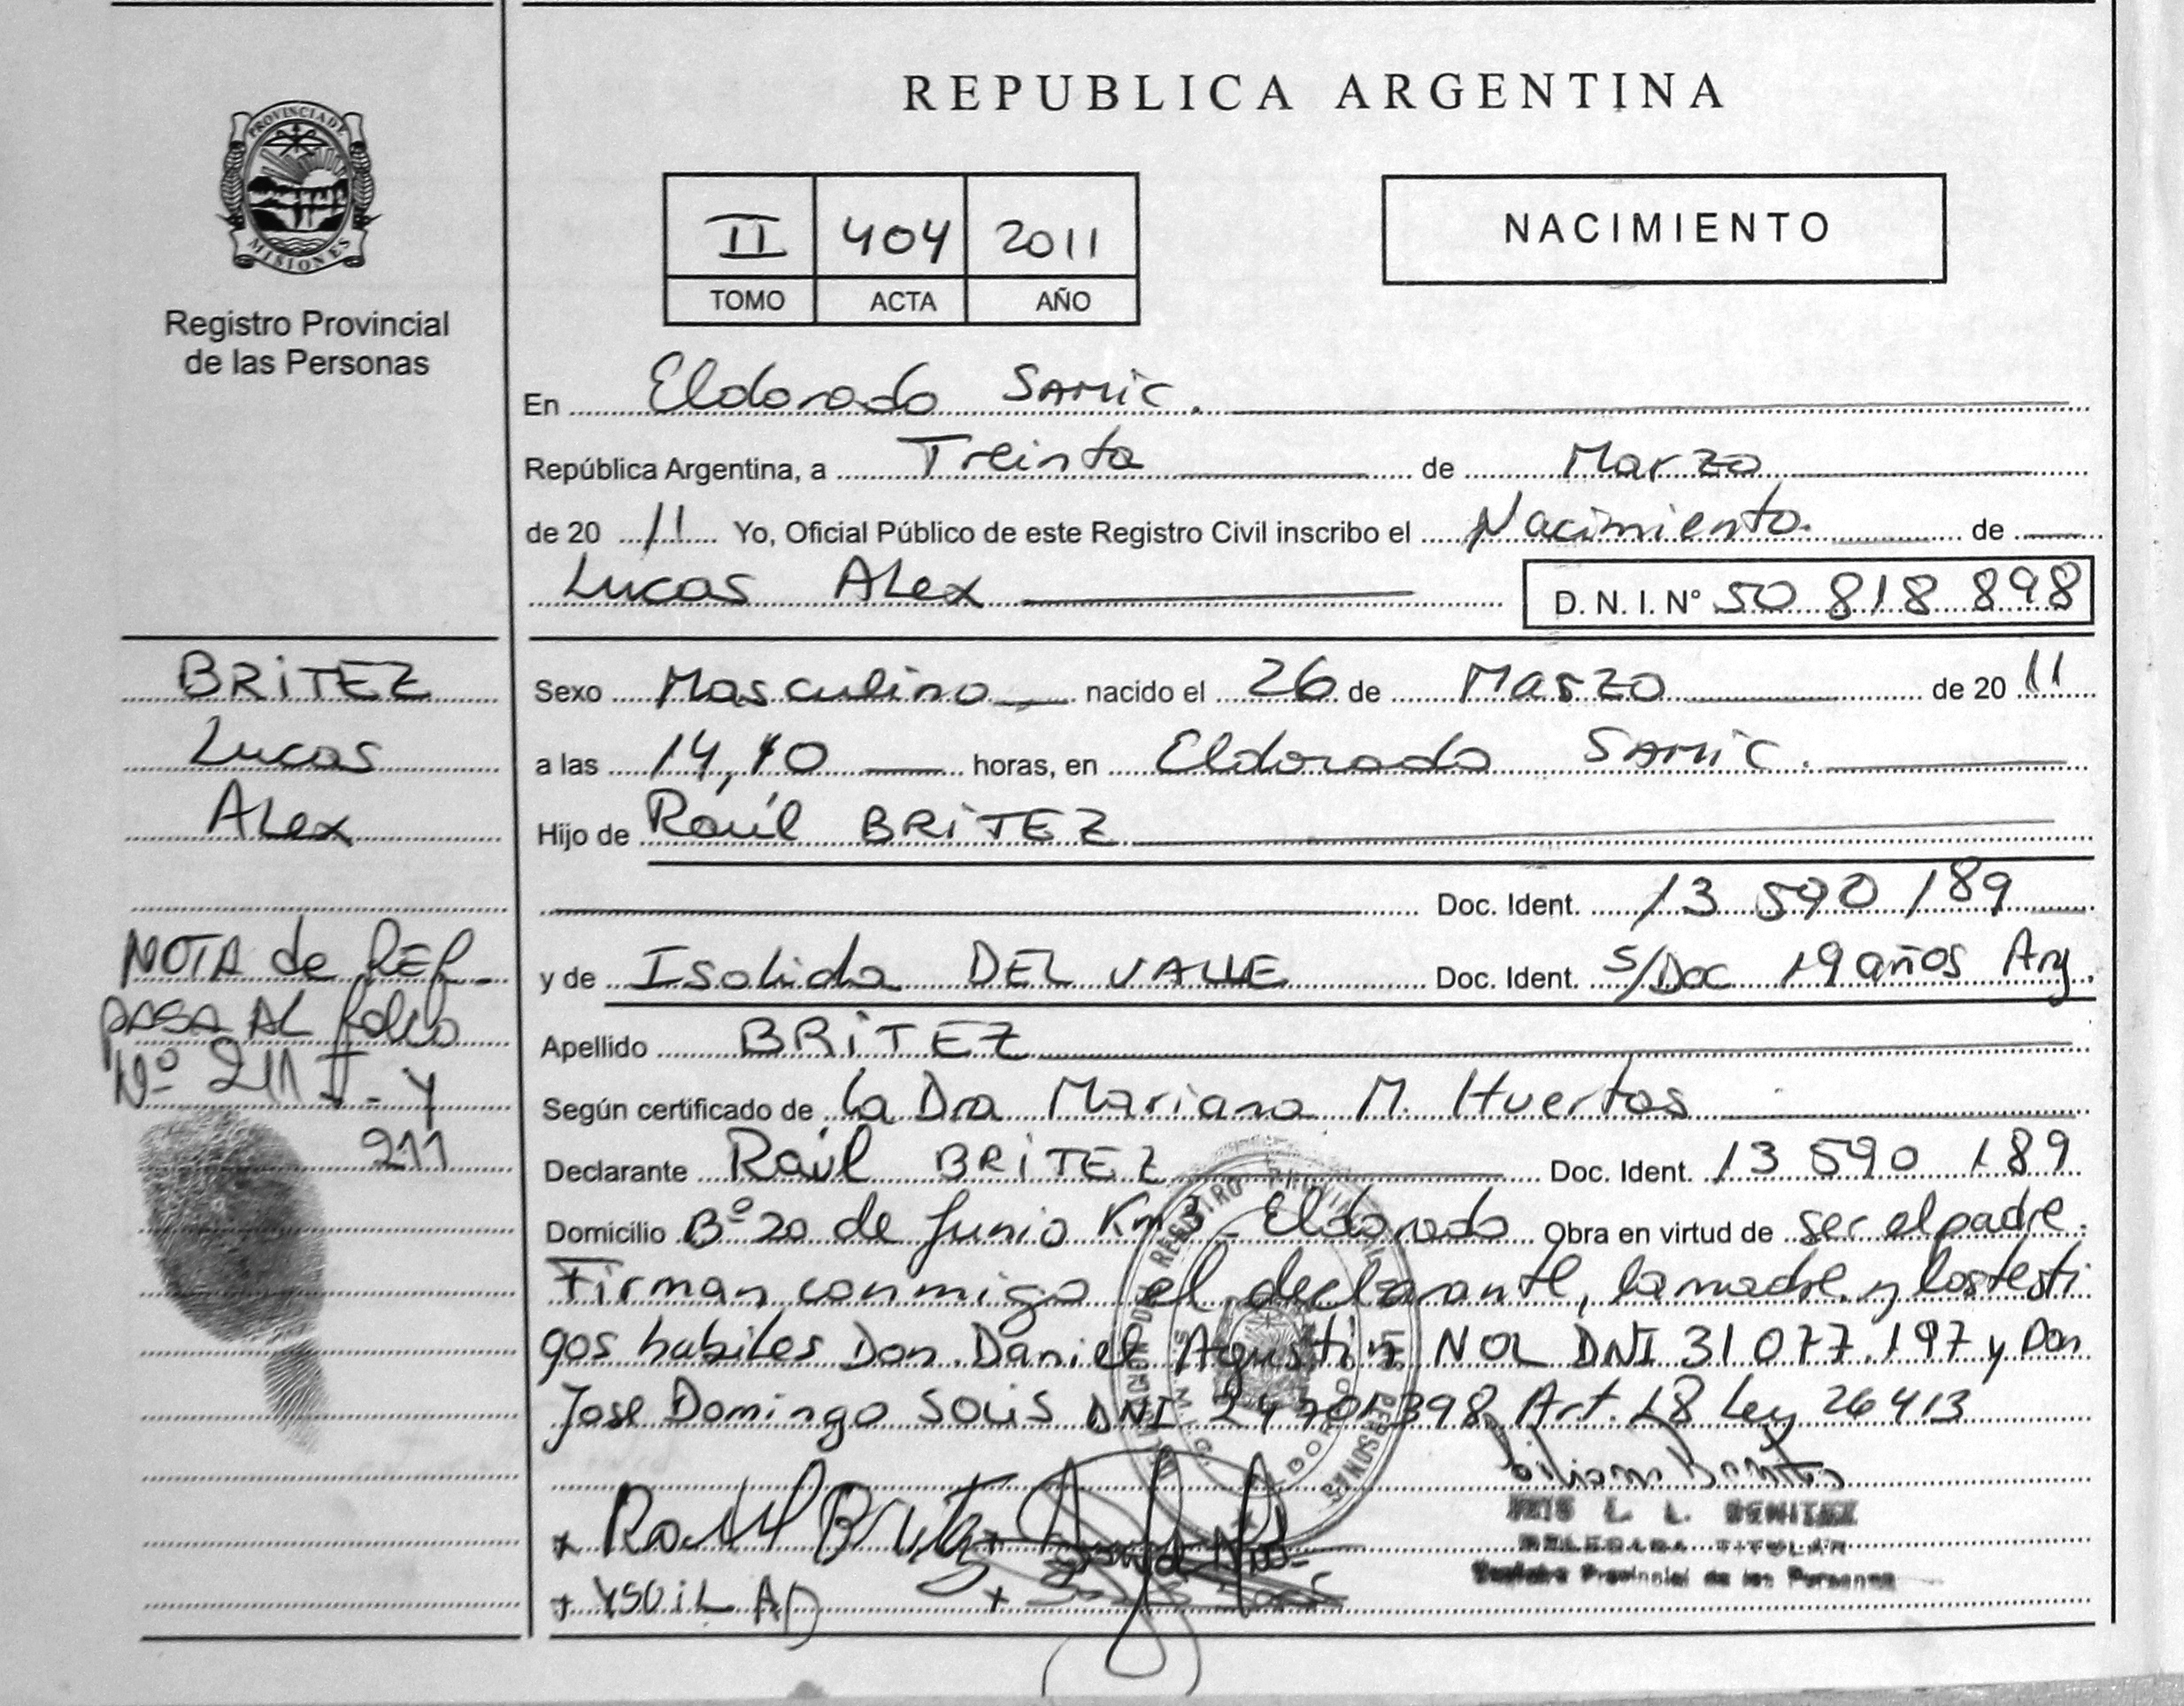 REPUBLICA ARGENTINA
PROVINCIA DE
MISIONES
Registro Provincial
de las Personas
II 404 2011
TOMO ACTA AÑO
NACIMIENTO
En Eldorado SAMIC.
República Argentina, a Treinta de Marzo
de 20 11 Yo, Oficial Público de este Registro Civil inscribo el Nacimiento de
Lucas Alex
D. N. I. N° 50 818 898
BRITEZ
Lucas
Alex
Sexo Masculino nacido el 26 de Marzo de 20 11
a las 14,10 horas, en Eldorado SAMIC.
Hijo de Raúl BRITEZ
Doc. Ident. 13 590 189
y de Isolida DEL VALLE Doc. Ident. S/Doc 19 años Arg.
Apellido BRITEZ
Según certificado de la Dra Mariana M. Huertas
Declarante Raúl BRITEZ Doc. Ident. 13 590 189
Domicilio Bº 20 de Junio Km 3 Eldorado Obra en virtud de ser el padre.
Firman conmigo el declarante, la madre y los testi
gos habiles Don Daniel Agustin NOL DNI 31 077 197 y Don
Jose Domingo SOLIS DNI 24 701 398 Art. 18 Ley 26413
NOTA de REF-
PASA AL folio
Nº 211 I - y
211
Raul Britez
YSOiL AD
L. L. BENITEZ
DELEGADA TITULAR
Registro Provincial de las Personas